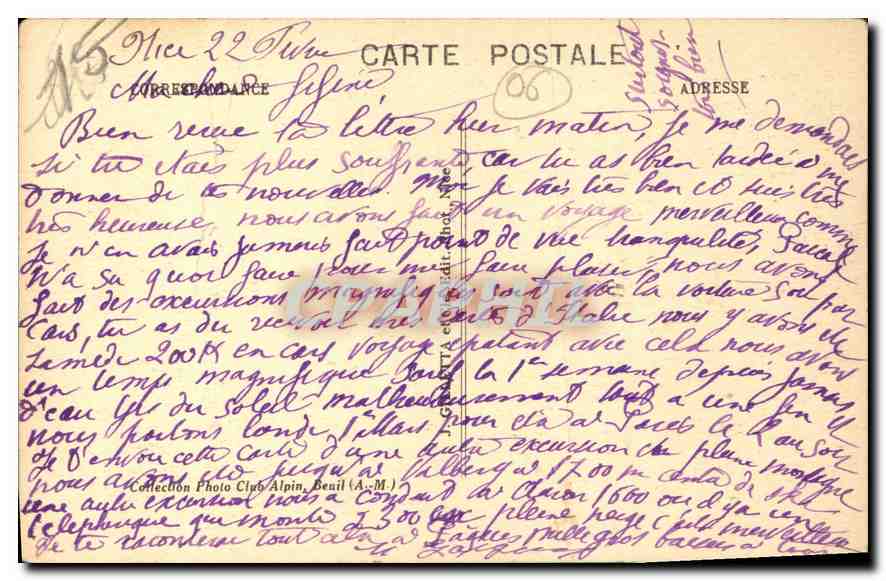 CARTE POSTALE
CORRESPONDANCE
ADRESSE
115
06
Nice 22
Surtout
soignes
très bien
Bien reçue ta lettre hier matin, je me demandais
si tu étais plus souffrante, car tu as bien tardée à me
donner de tes nouvelles. Moi je vais très bien et suis très
très heureuse, nous avons fait un voyage merveilleux comme
je n'en avais jamais fait point de vue tranquilité,
n'a su quoi faire pour me faire plaisir, nous avons
fait des excursions magnifiques soit avec la voiture soit par
cars, tu as du recevoir mes cartes d'Italie nous y avons été
samedi 200 K en cars voyage épatant avec cela nous avons
un temps magnifique sauf la 1re semaine depuis jamais
d'eau du soleil malheureusement tout a une fin
nous partons lundi 1er Mars pour être à Paris le 2 au soir
Je t'envoie cette carte d'une autre excursion en pleine montagne
nous avons été jusqu'à Valberg à 1700 m
une autre excursion nous a conduit à 1600 ou il y a un
téléphérique qui monte à 2300 en pleine neige c'est merveilleux
de te raconterai tout cela à Pâques mille gros baisers
GILLETTA et Cie, Edit. Phot. Nice
Collection Photo Club Alpin, Beuil (A.-M.)
CPARAMA